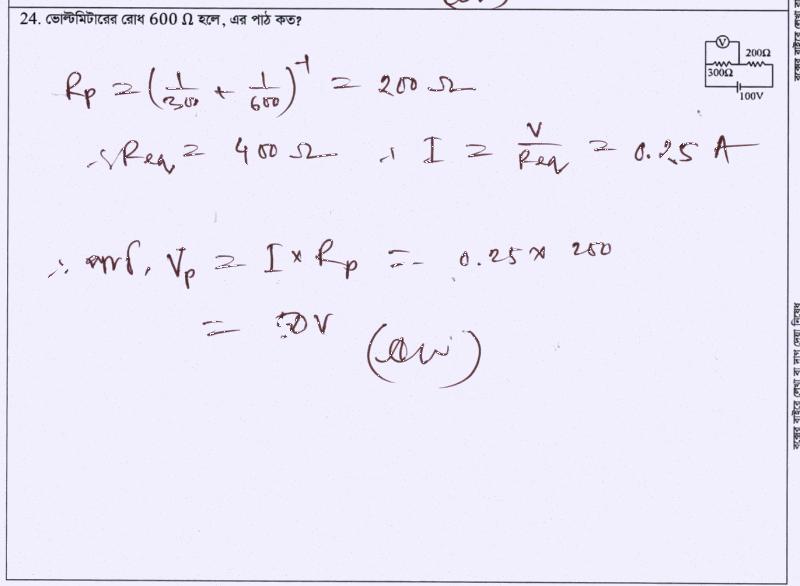 24. ভোল্টমিটারের রোধ 600 Ω হলে, এর পাঠ কত?
V
200Ω
300Ω
100V
Rp = (1/300 + 1/600)^-1 = 200 Ω
∴ Req = 400 Ω ∴ I = V/Req = 0.25 A
∴ পাঠ, Vp = I × Rp = 0.25 × 200
= 50V (Ans)
বক্সের বাইরে লেখা বা দাগ দেয়া নিষেধ